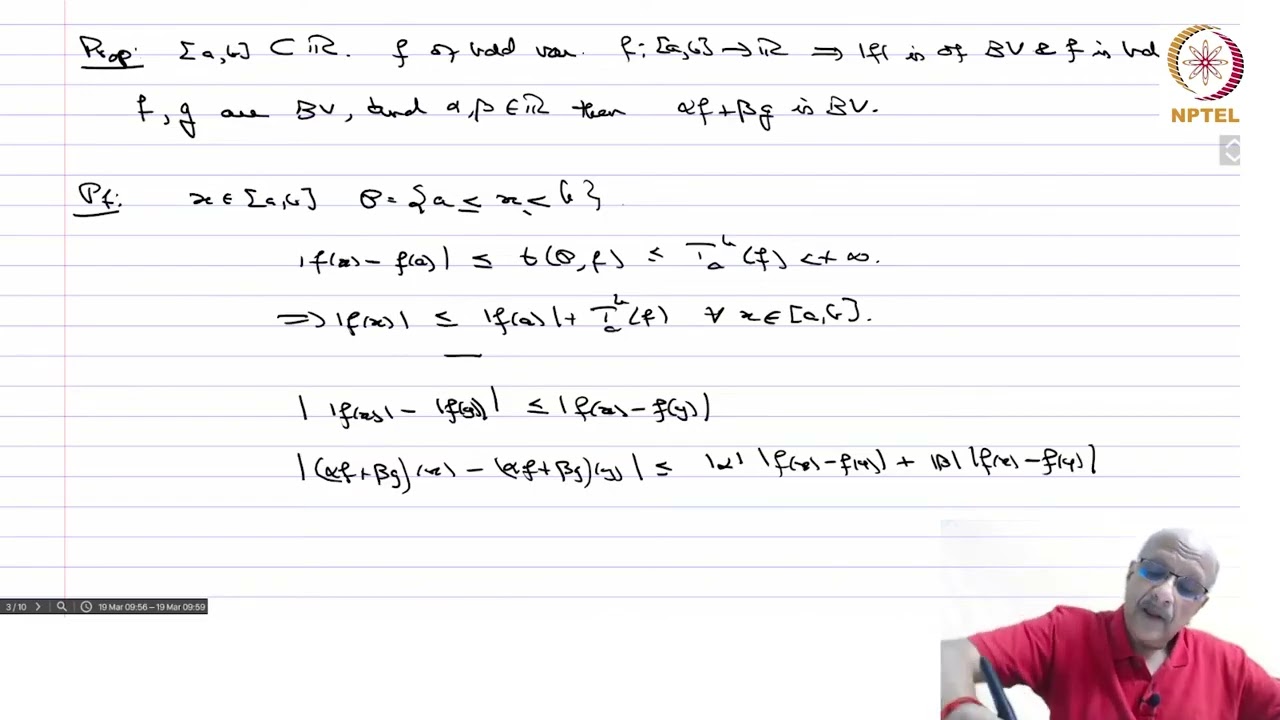 Prop: [a,b] ⊂ ℝ. f of bdd var. f: [a,b] → ℝ ⇒ |f| is of BV & f is bd
f, g are BV, and α, β ∈ ℝ then αf + βg is BV.
NPTEL
Pf: x ∈ [a,b] 𝒫 = {a ≤ x < b}
|f(x) - f(a)| ≤ t(𝒫, f) ≤ T_a^b(f) < +∞.
⇒ |f(x)| ≤ |f(a)| + T_a^b(f) ∀ x ∈ [a,b].
| |f(x)| - |f(y)| | ≤ |f(x) - f(y)|
|(αf+βg)(x) - (αf+βg)(y)| ≤ |α| |f(x) - f(y)| + |β| |f(x) - f(y)|
3 / 10 19 Mar 09:56 – 19 Mar 09:59